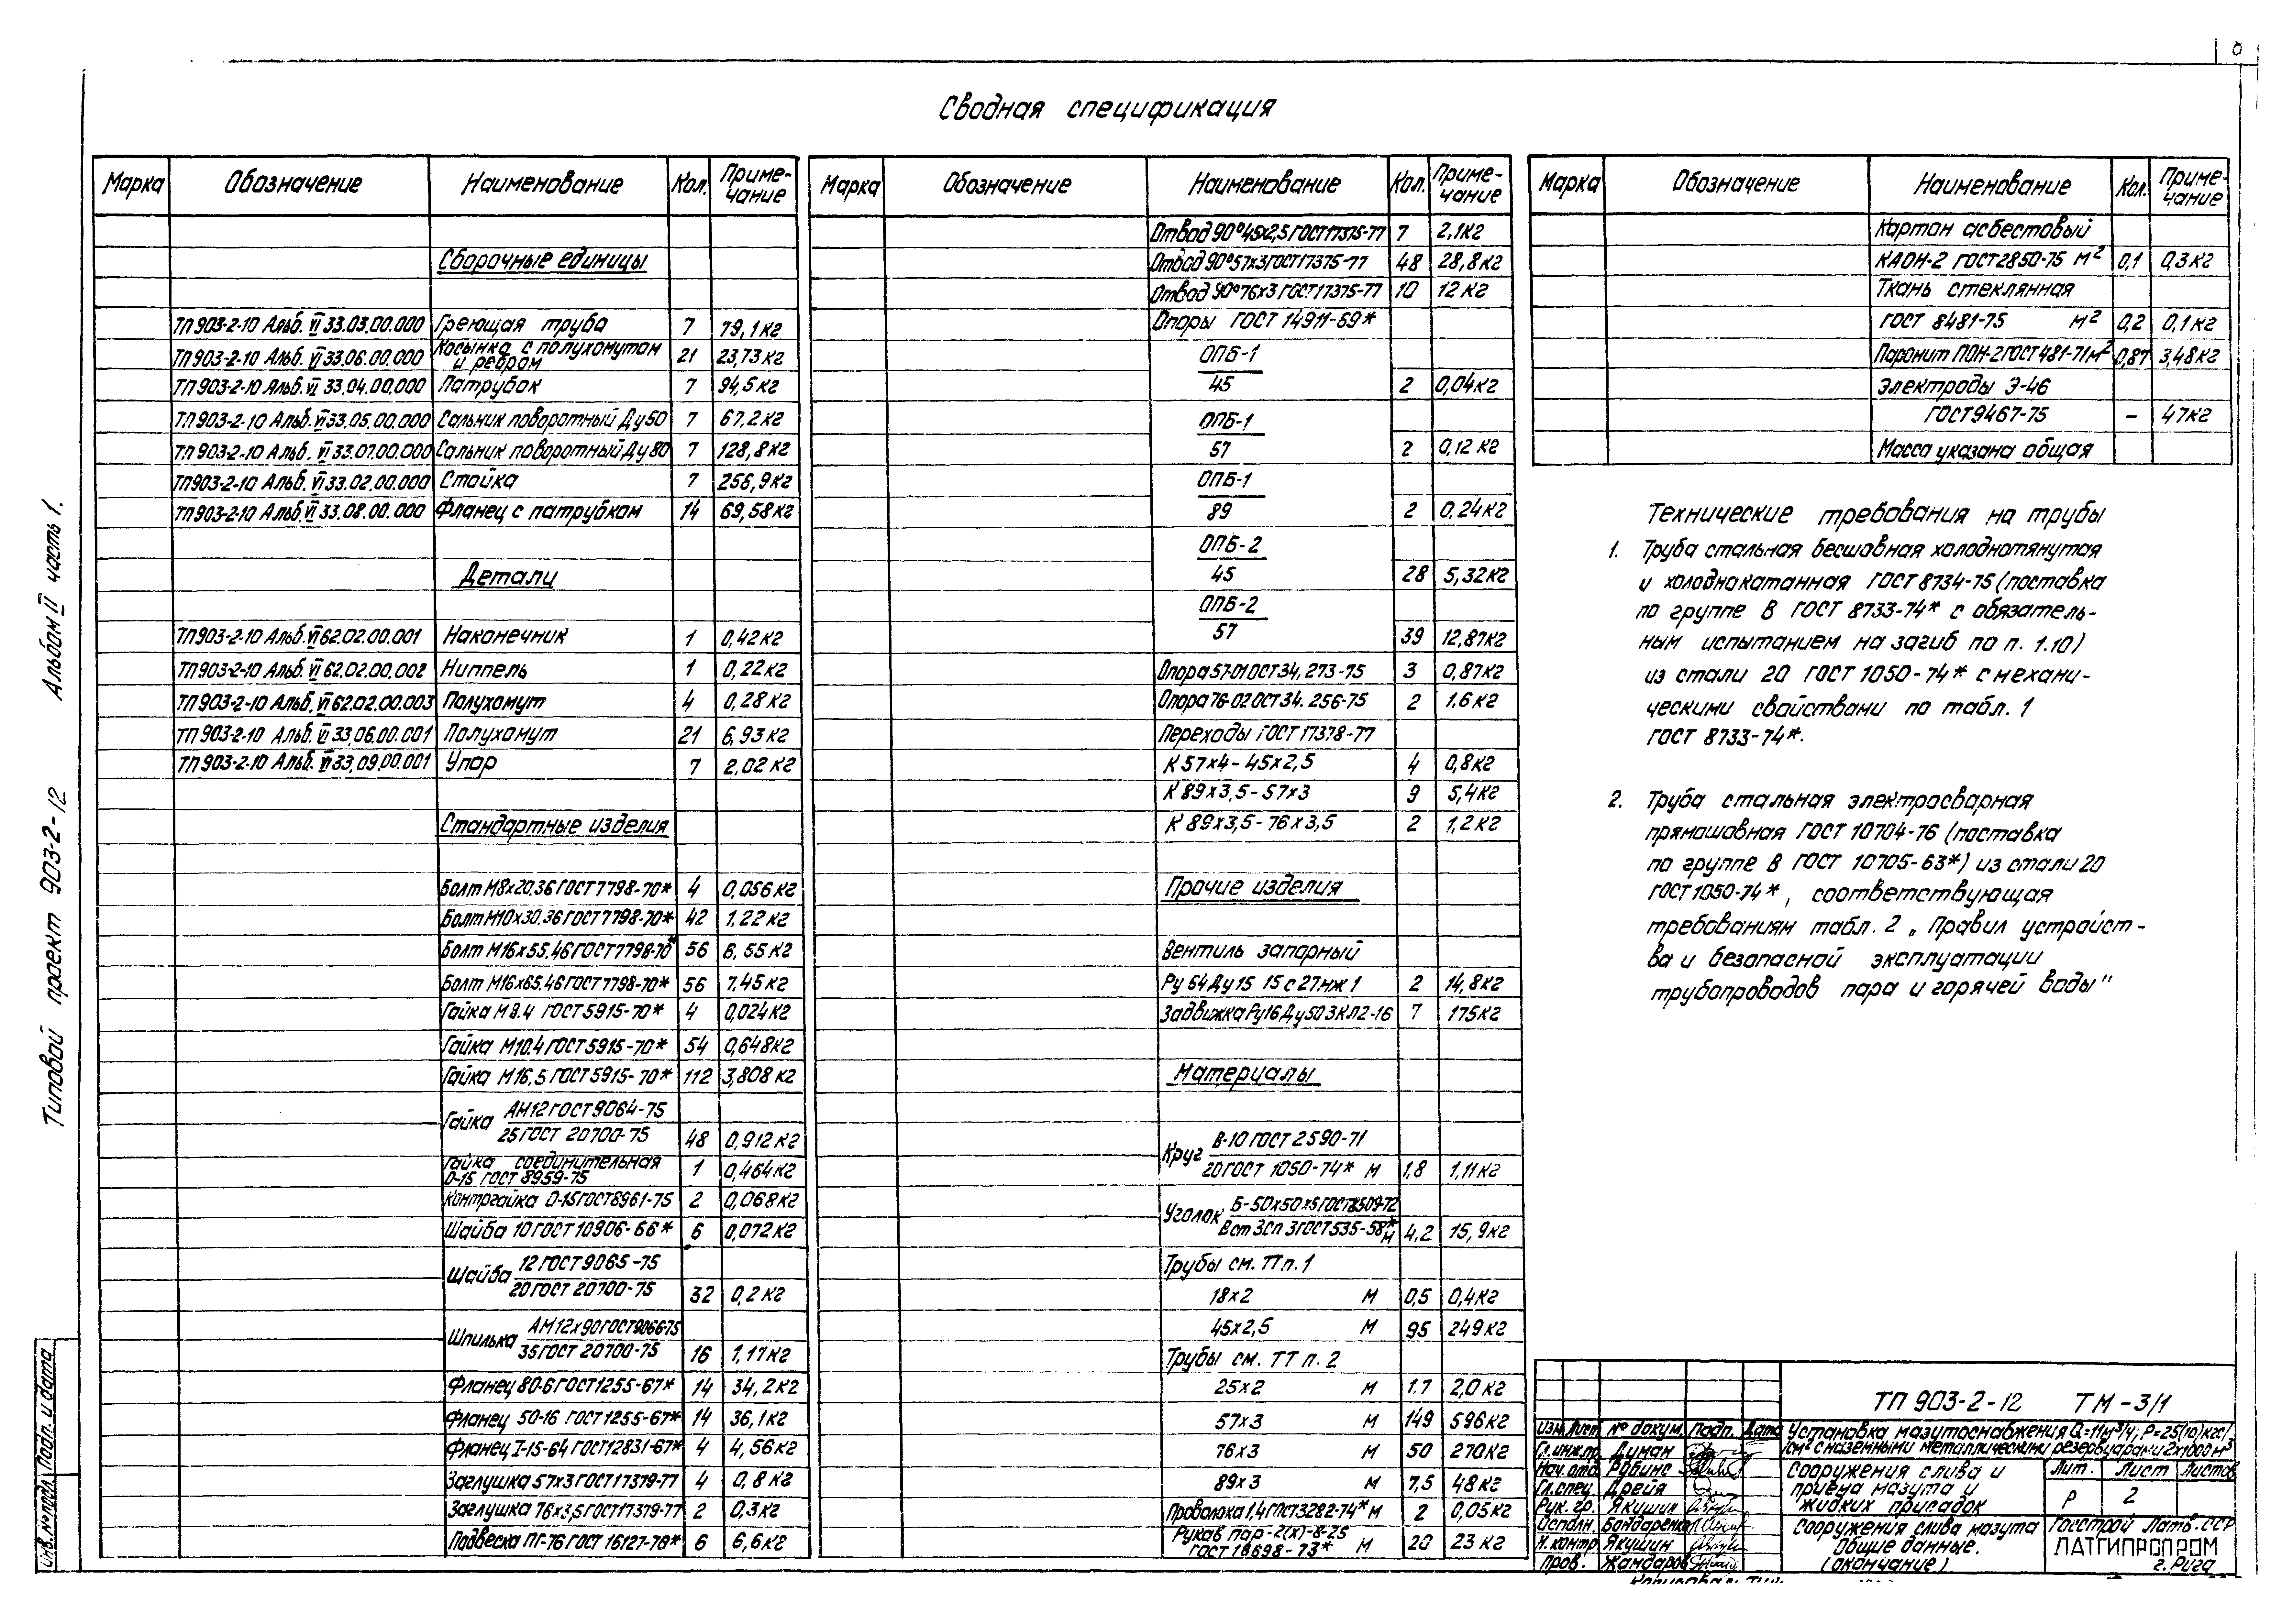 Сводная спецификация
Марка Обозначение Наименование Кол. Приме-чание
Сборочные единицы
ТП 903-2-10 Альб. VI 33.03.00.000 Греющая труба 7 79,1 кг
ТП 903-2-10 Альб. VI 33.06.00.000 Косынка с полухомутом и ребром 21 23,73 кг
ТП 903-2-10 Альб. VI 33.04.00.000 Патрубок 7 94,5 кг
ТП 903-2-10 Альб. VI 33.05.00.000 Сальник поворотный Ду50 7 67.2 кг
ТП 903-2-10 Альб. VI 33.07.00.000 Сальник поворотный Ду80 7 128,8 кг
ТП 903-2-10 Альб. VI 33.02.00.000 Стойка 7 256,9 кг
ТП 903-2-10 Альб. VI 33.08.00.000 Фланец с патрубком 14 69,58 кг
Детали
ТП 903-2-10 Альб. VI 62.02.00.001 Наконечник 1 0,42 кг
ТП 903-2-10 Альб. VI 62.02.00.002 Ниппель 1 0,22 кг
ТП 903-2-10 Альб. VI 62.02.00.003 Полухомут 4 0,28 кг
ТП 903-2-10 Альб. VI 33.06.00.001 Полухомут 21 6,93 кг
ТП 903-2-10 Альб. VI 33.09.00.001 Упор 7 2.02 кг
Стандартные изделия
Болт М8х20.36 ГОСТ 7798-70* 4 0,056 кг
Болт М10х30.36 ГОСТ 7798-70* 42 1,22 кг
Болт М16х55.46 ГОСТ 7798-70* 56 6,55 кг
Болт М16х65.46 ГОСТ 7798-70* 56 7,45 кг
Гайка М8.4 ГОСТ 5915-70* 4 0,024 кг
Гайка М10.4 ГОСТ 5915-70* 54 0,648 кг
Гайка М16.5 ГОСТ 5915-70* 112 3,808 кг
Гайка АМ12 ГОСТ 9064-75
25 ГОСТ 20700-75 48 0,912 кг
Гайка соединительная
О-15 ГОСТ 8959-75 1 0,464 кг
Контргайка О-15 ГОСТ 8961-75 2 0,068 кг
Шайба 10 ГОСТ 10906-66* 6 0,072 кг
Шайба 12 ГОСТ 9065-75
20 ГОСТ 20700-75 32 0,2 кг
Шпилька АМ12х90 ГОСТ 9066-75
35 ГОСТ 20700-75 16 1,17 кг
Фланец 80-6 ГОСТ 1255-67* 14 34,2 кг
Фланец 50-16 ГОСТ 1255-67* 14 36,1 кг
Фланец I-15-64 ГОСТ 12831-67* 4 4,56 кг
Заглушка 57х3 ГОСТ 17379-77 4 0,8 кг
Заглушка 76х3,5 ГОСТ 17379-77 2 0,3 кг
Подвеска ПГ-76 ГОСТ 16127-70* 6 6,6 кг
Марка Обозначение Наименование Кол. Приме-чание
Отвод 90°45х2,5 ГОСТ 17375-77 7 2,1 кг
Отвод 90°57х3 ГОСТ 17375-77 48 28,8 кг
Отвод 90°76х3 ГОСТ 17375-77 10 12 кг
Опоры ГОСТ 14911-69*
ОПБ-1
45 2 0,04 кг
ОПБ-1
57 2 0,12 кг
ОПБ-1
89 2 0,24 кг
ОПБ-2
45 28 5,32 кг
ОПБ-2
57 39 12,87 кг
Опора 57-01 ОСТ 34.273-75 3 0,87 кг
Опора 76-02 ОСТ 34.256-75 2 1.6 кг
Переходы ГОСТ 17378-77
К 57х4-45х2,5 4 0,8 кг
К 89х3,5-57х3 9 5,4 кг
К 89х3,5-76х3,5 2 1,2 кг
Прочие изделия
Вентиль запорный
Ру 64 Ду 15 15с27нж1 2 14,8 кг
Задвижка Ру16 Ду50 ЗКЛ2-16 7 175 кг
Материалы
Круг В-10 ГОСТ 2590-71
20 ГОСТ 1050-74* м 1,8 1,11 кг
Уголок Б-50х50х5 ГОСТ 8509-72
Вст 3сп 3 ГОСТ 535-58* м 4,2 15,9 кг
Трубы см. ТТ п. 1
18х2 м 0,5 0,4 кг
45х2,5 м 95 249 кг
Трубы см. ТТ п. 2
25х2 м 1.7 2,0 кг
57х3 м 149 596 кг
76х3 м 50 270 кг
89х3 м 7,5 48 кг
Проволока 1,4 ГОСТ 3282-74* м 2 0,05 кг
Рукав пар-2(х)-8-25
ГОСТ 18698-73* м 20 23 кг
Марка Обозначение Наименование Кол. Приме-чание
Картон асбестовый
КАОН-2 ГОСТ 2850-75 м² 0,1 0,3 кг
Ткань стеклянная
ГОСТ 8481-75 м² 0,2 0,1 кг
Паронит ПОН-2 ГОСТ 481-71 м² 0,87 3,48 кг
Электроды Э-46
ГОСТ 9467-75 – 47 кг
Масса указана общая
Технические требования на трубы
1. Труба стальная бесшовная холоднотянутая
и холоднокатанная ГОСТ 8734-75 (поставка
по группе В ГОСТ 8733-74* с обязатель-
ным испытанием на загиб по п. 1.10)
из стали 20 ГОСТ 1050-74* с механи-
ческими свойствами по табл. 1
ГОСТ 8733-74*.
2. Труба стальная электросварная
прямошовная ГОСТ 10704-76 (поставка
по группе В ГОСТ 10705-63*) из стали 20
ГОСТ 1050-74*, соответствующая
требованиям табл. 2 „Правил устройст-
ва и безопасной эксплуатации
трубопроводов пара и горячей воды"
ТП 903-2-12 ТМ-3/1
Изм. Лист № докум. Подп. Дата
Установка мазутоснабжения Q=11м³/ч; Р=25(10)кгс/
см² с наземными металлическими резервуарами 2х1000 м³
Гл.инж.пр. Думан
Нач. отд. Рубинс
Гл.спец. Дрейя
Рук. гр. Якушин
Исполн. Бондаренко
Н.контр. Якушин
Пров. Жандаров
Сооружения слива и
приема мазута и
жидких присадок
Лит. Лист Листов
Р 2
Сооружения слива мазута
Общие данные.
(окончание)
Госстрой Латв. ССР
ЛАТГИПРОПРОМ
г. Рига
Типовой проект 903-2-12 Альбом II часть 1.
Инв. № подл. Подп. и дата